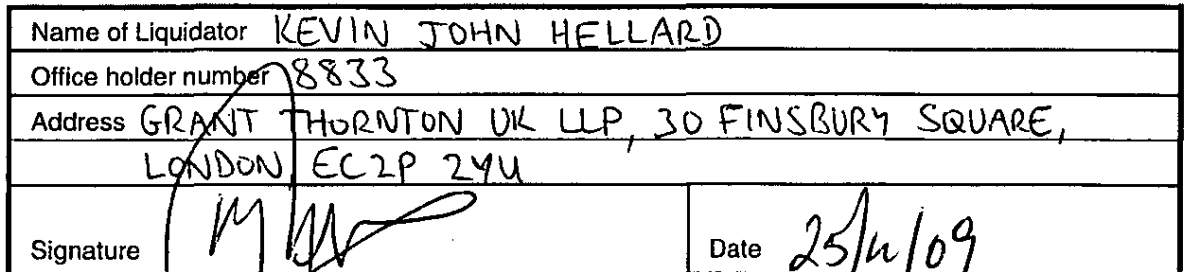 Name of Liquidator KEVIN JOHN HELLARD
Office holder number 8833
Address GRANT THORNTON UK LLP, 30 FINSBURY SQUARE,
LONDON EC2P 2YU
Signature
Date 25/11/09